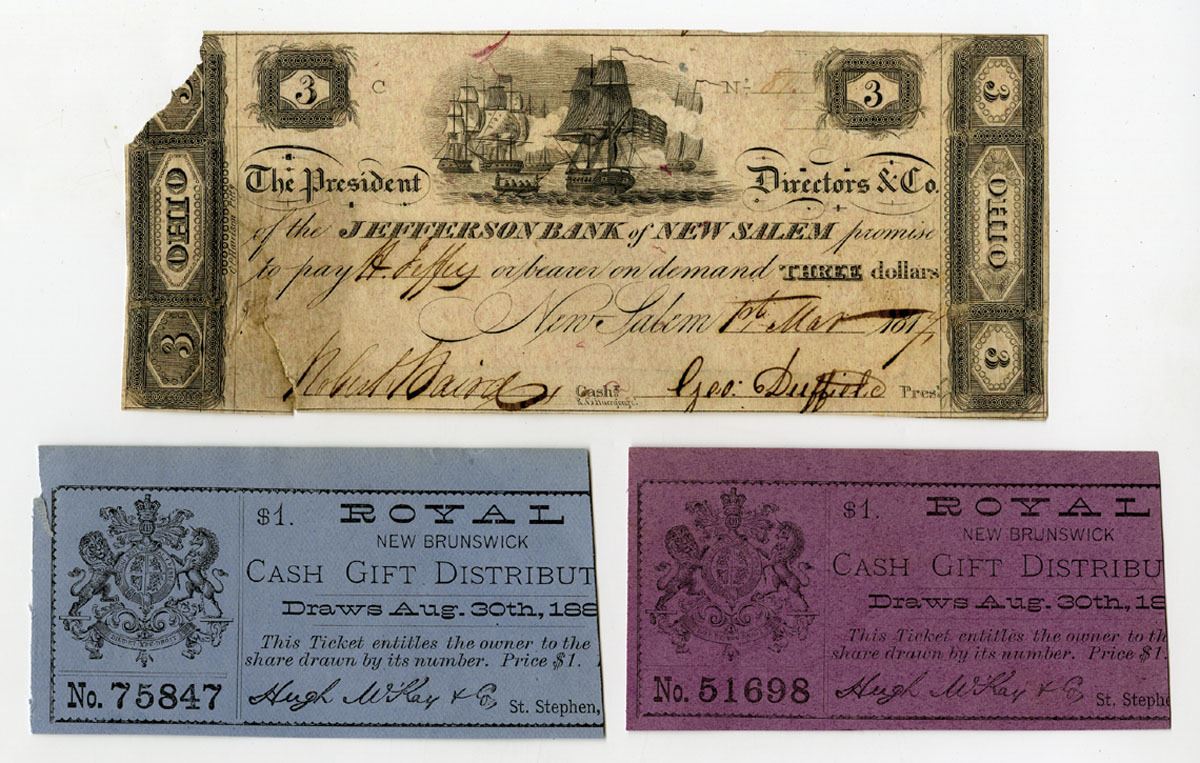 3 C No. 3
The President Directors & Co.
of the JEFFERSON BANK of NEW SALEM promise
to pay H. Jeffey or bearer on demand THREE dollars
New-Salem 1st Mar 1817
Robert Baird Cashr. Geo: Duffield Prest.
3
OHIO
3
3
OHIO
3
$1. ROYAL
NEW BRUNSWICK
CASH GIFT DISTRIBUT
Draws Aug. 30th, 188
This Ticket entitles the owner to the
share drawn by its number. Price $1.
No. 75847 Hugh McKay & Co St. Stephen,
$1. ROYAL
NEW BRUNSWICK
CASH GIFT DISTRIBU
Draws Aug. 30th, 18
This Ticket entitles the owner to th
share drawn by its number. Price $1.
No. 51698 Hugh McKay & Co St. Stephe